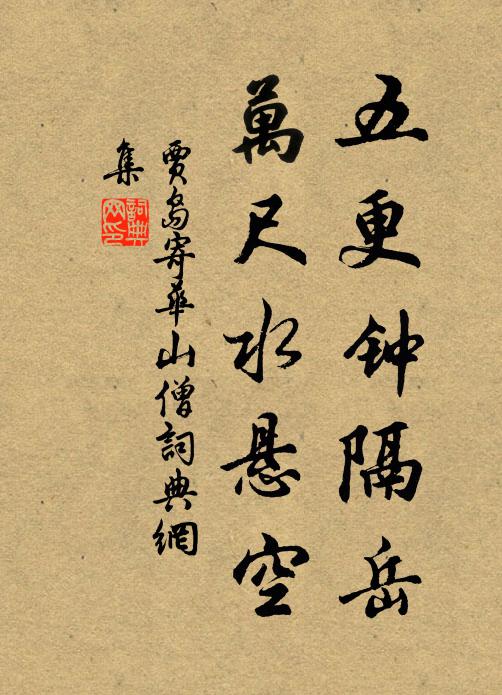 五更钟隔岳
萬尺水悬空
賈島寄華山僧詞典網
集
詞典
网印